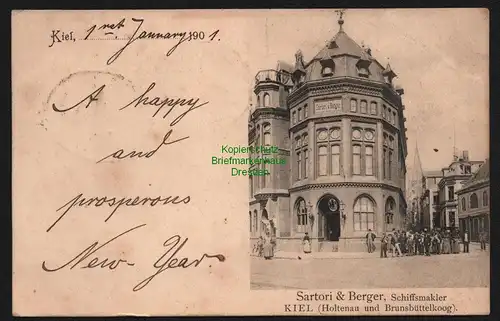 Kiel, 1st January 1901.
A happy
and
prosperous
New-Year.
Sartori & Berger
Kopierschutz
Briefmarkenhandel
Dresden
Sartori & Berger, Schiffsmakler
KIEL (Holtenau und Brunsbüttelkoog).